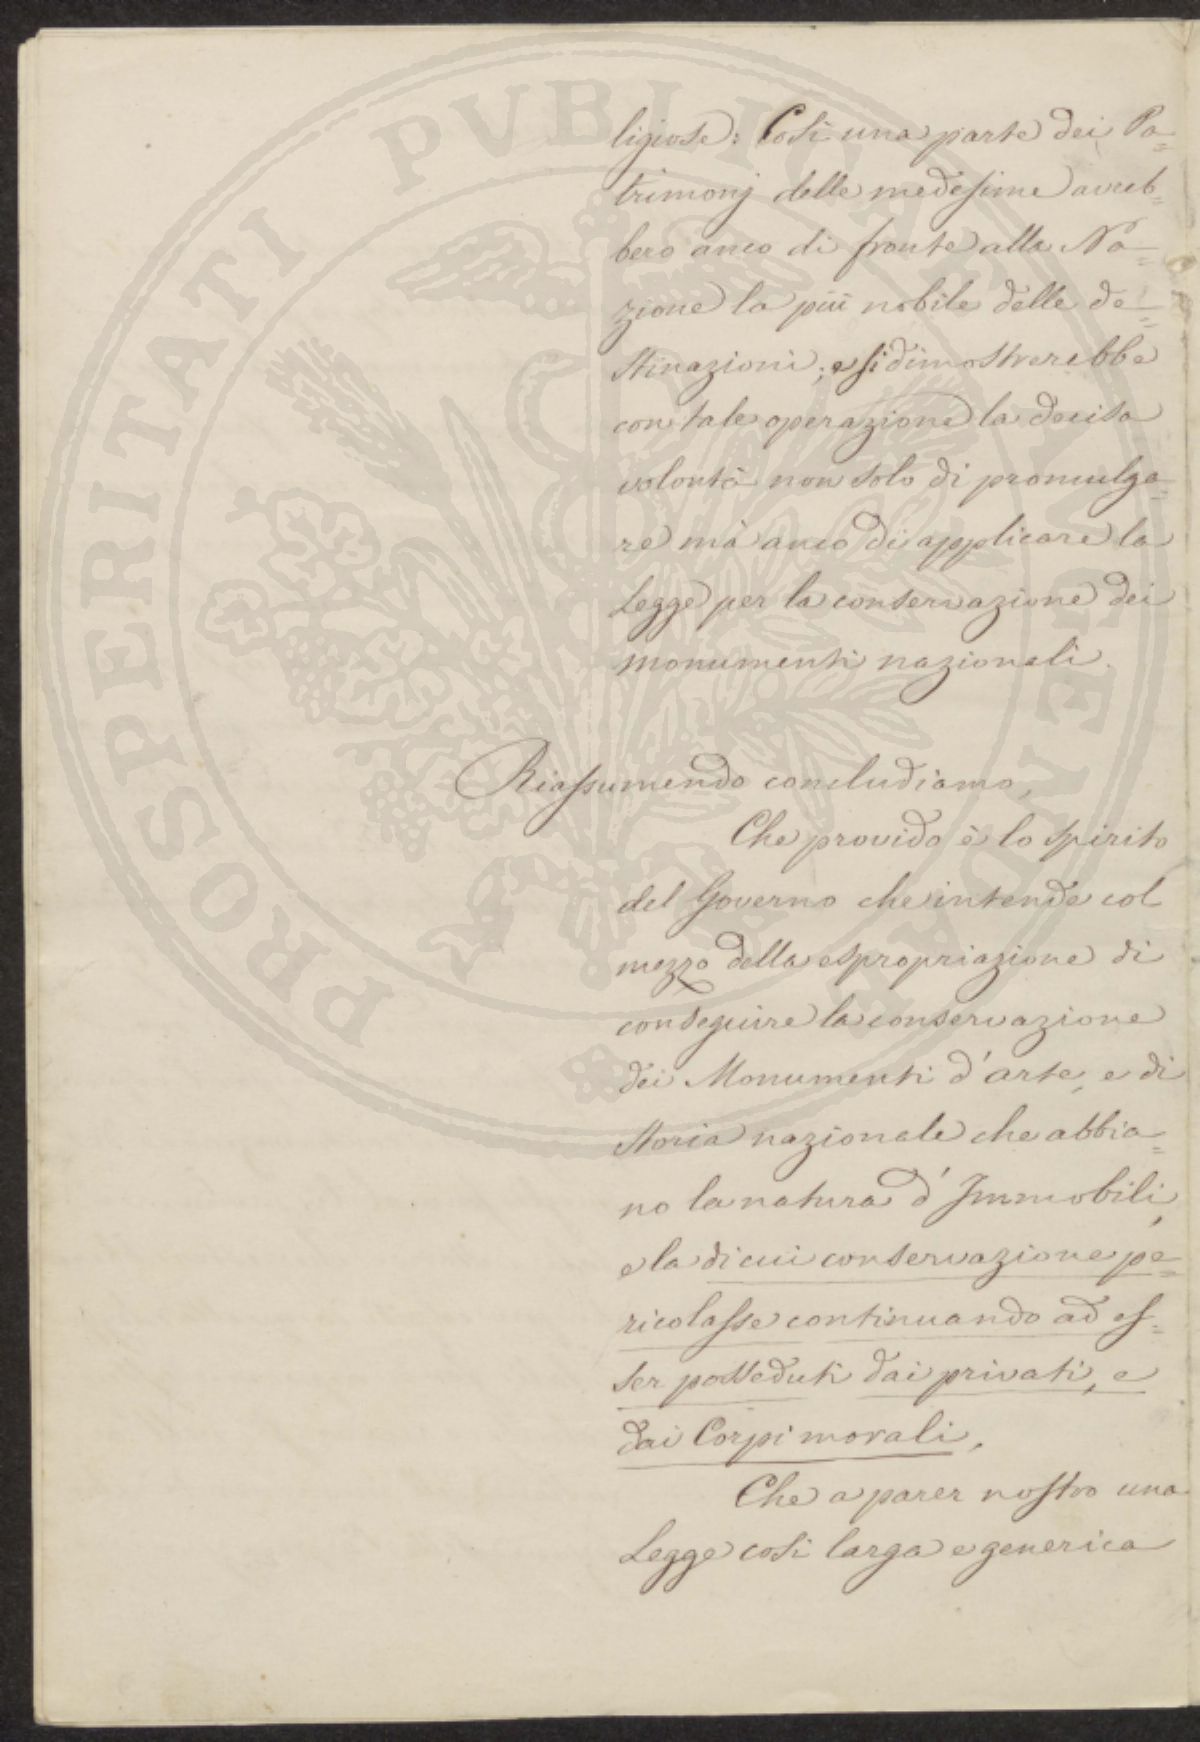 ligiose: Così una parte dei Pa=
trimonj delle medesime avreb=
bero anco di fronte alla Na=
zione la più nobile delle de=
stinazioni; e si dimostrerebbe
con tale operazione la decisa
volontà non solo di promulga=
re mà anco di applicare la
Legge per la conservazione dei
monumenti nazionali.
Riassumendo concludiamo,
Che provido è lo spirito
del Governo che intende col
mezzo della espropriazione di
conseguire la conservazione
dei Monumenti d'arte, e di
Storia nazionale che abbia=
no la natura d'Immobili,
e la di cui conservazione pe=
ricolasse continuando ad es=
ser posseduti dai privati, e
dai Corpi morali,
Che a parer nostro una
Legge così larga e generica
PROSPERITATI PVBLICAE AVGENDAE